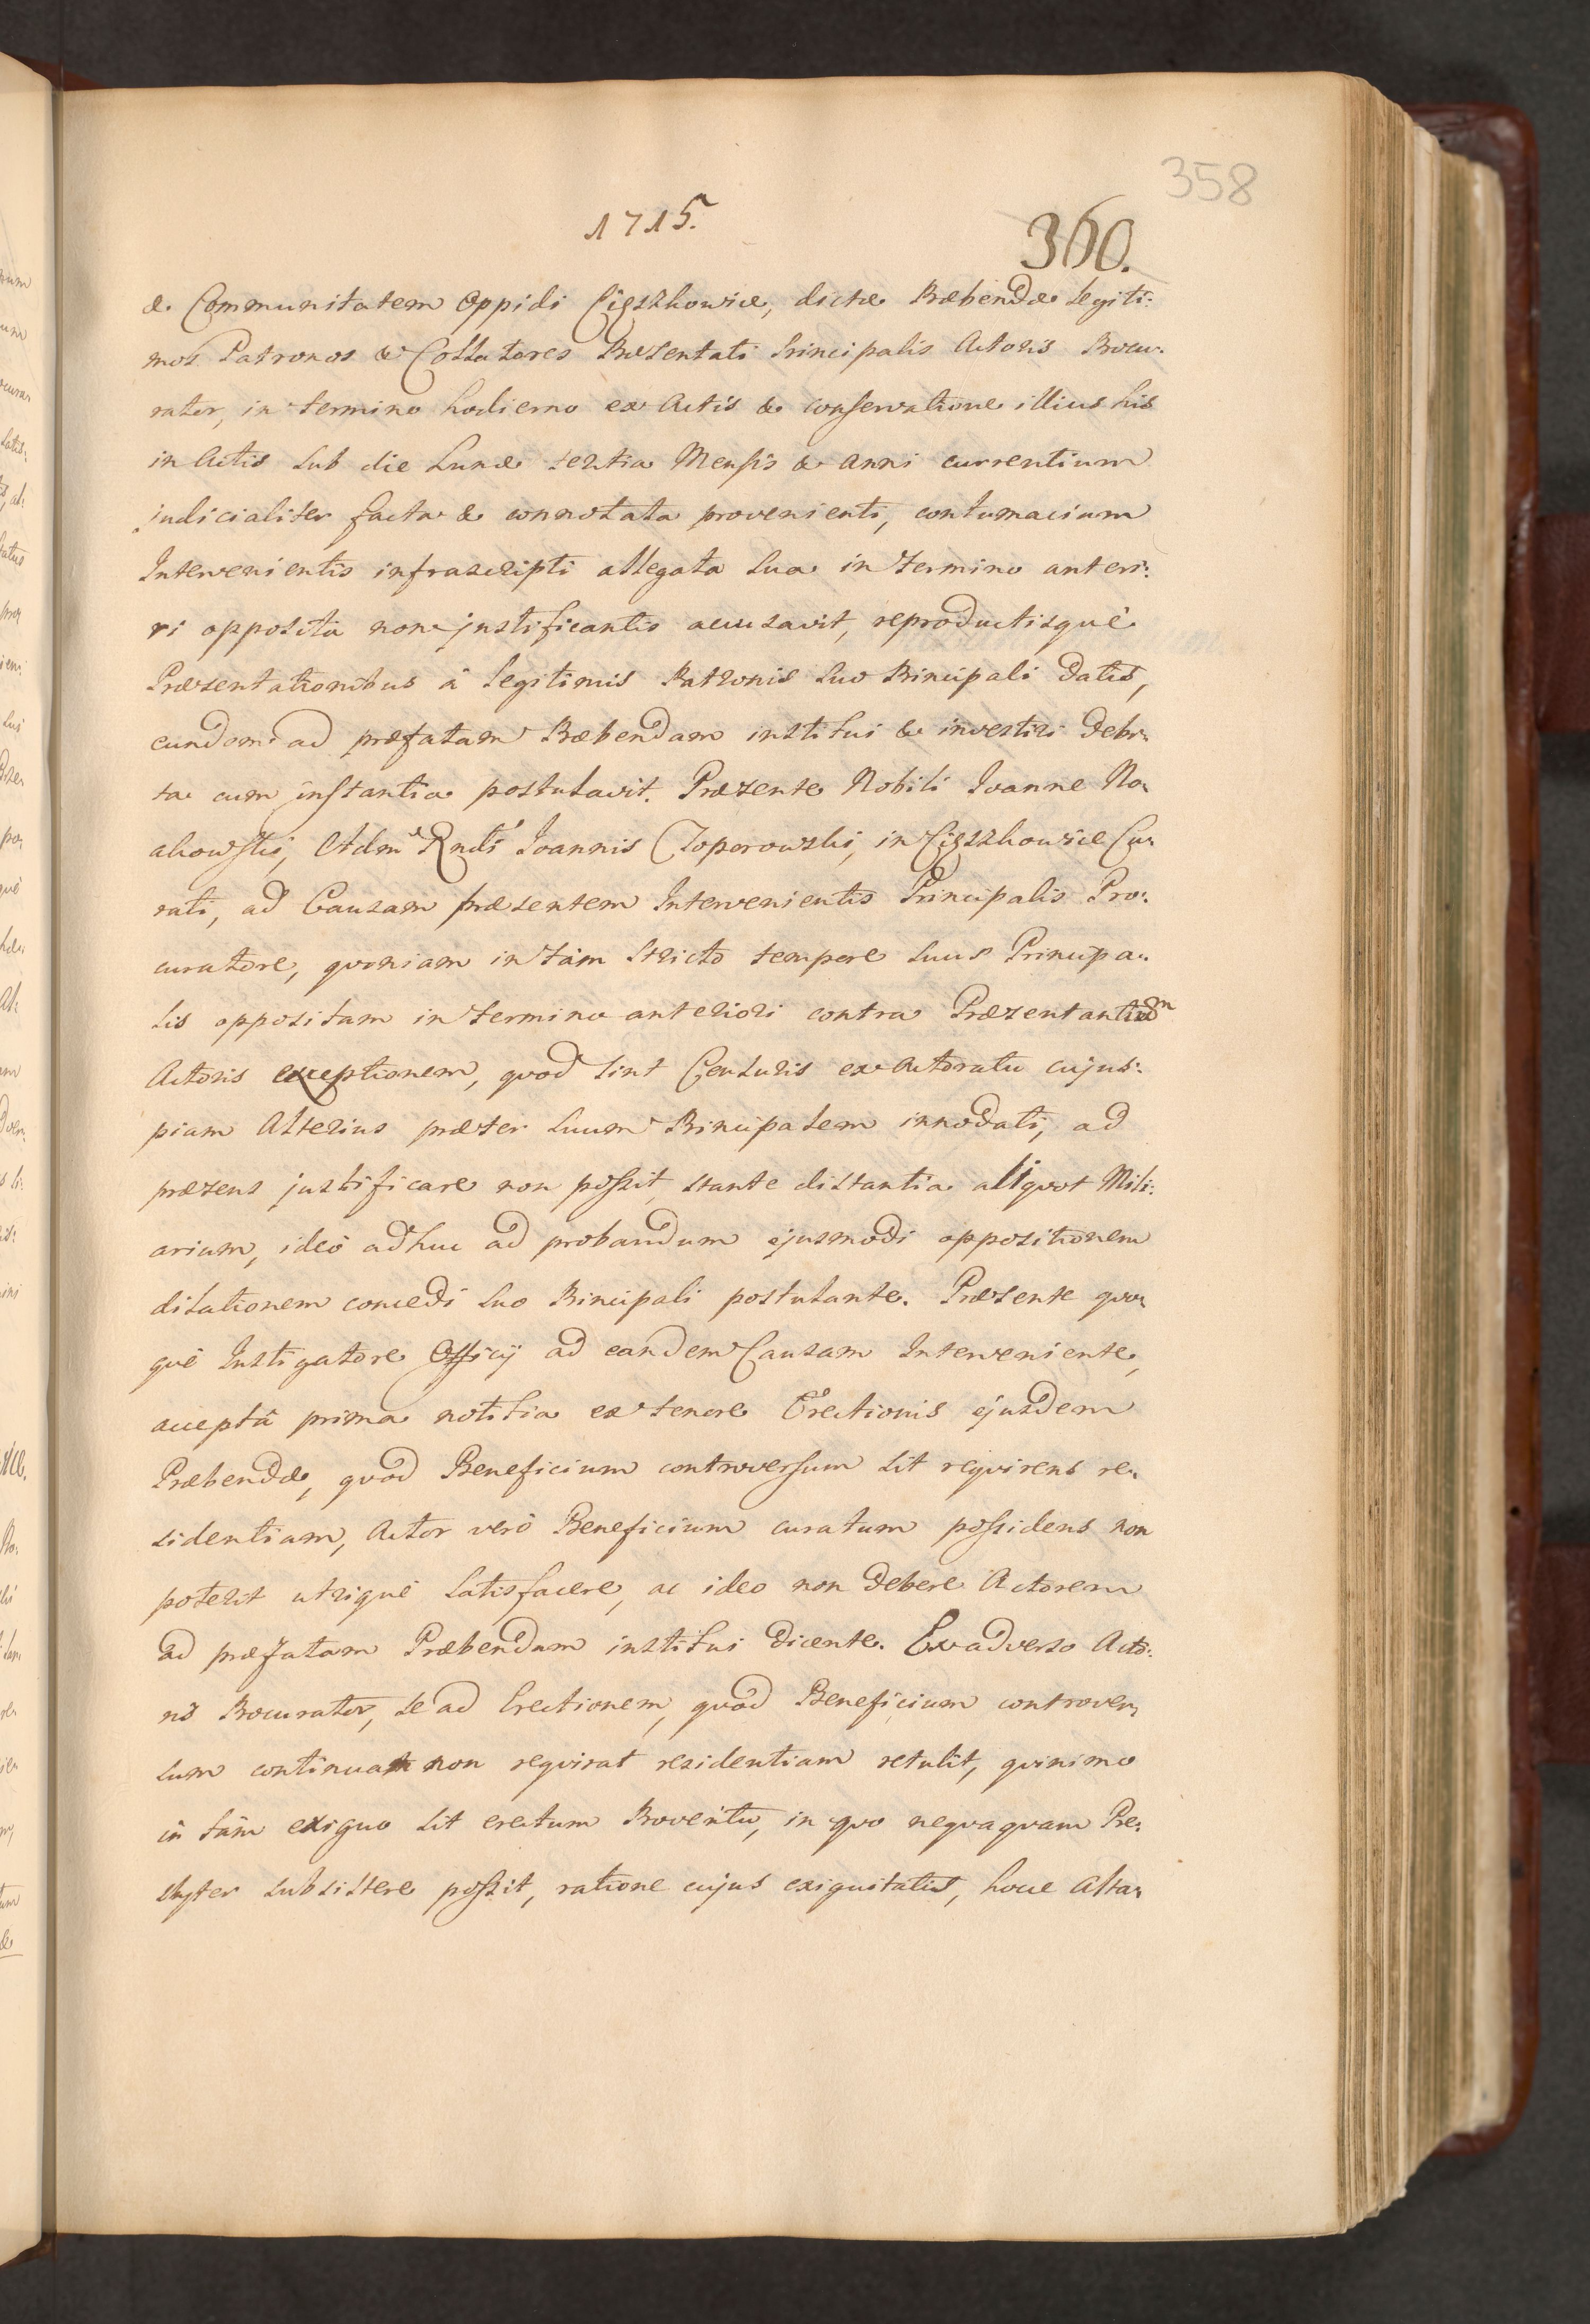 358
1715.
360.
& Communitatem Oppidi Ciężkowice, dictæ Præbendæ legiti:
mos Patronos & Collatores Præsentati Principalis Actoris Procu:
rator, in termino hodierno ex Actis & conservatione illius his
in Actis sub die Lunæ tertia Mensis & Anni currentium
judicialiter facta & connotata provenienti, contumaciam
Intervenientis infrascripti allegata sua in termino anteri:
ri opposita non justificantis accusavit, reproductisquè
Præsentationibus à legitimis Patronis suo Principali datis,
eundem ad præfatam Præbendam institui & investiri debi:
ta cum instantia postulavit. Præsente Nobili Joanne No:
akowski, Adm Rndi Joannis Toporowski, in Ciężkowice Cu:
rati, ad Causam præsentem Intervenientis Principalis Pro:
curatore, quoniam in tàm stricto tempore suus Principa:
lis oppositam in termino anteriori contra Præsentantium
Actoris exceptionem, quod sint Censuris ex Actoratu cujus:
piam Alterius præter suum Principalem innodati, ad
præsens justificare non possit, stante distantia aliquot Mili:
arium, ideò adhuc ad probandum ejusmodi oppositionem
dilationem concedi suo Principali postulante. Præsente quo:
què Instigatore Officij ad eandem Causam Interveniente,
acceptâ prima notitia ex tenore Erectionis ejusdem
Præbendæ, quòd Beneficium controversum sit requirens re:
sidentiam, Actor verò Beneficium curatum possidens non
poterit utriquè satisfacere, ac ideo non debere Actorem
ad præfatam Præbendam institui dicente. Ex adverso Acto:
ris Procurator, se ad Erectionem, quòd Beneficium controver:
sum continuam non requirat residentiam retulit, quinimo
in tàm exiguo sit erectum Proventu, in quo nequaquam Pre:
sbyter subsistere possit, ratione cujus exiguitatis, hocce Alta: